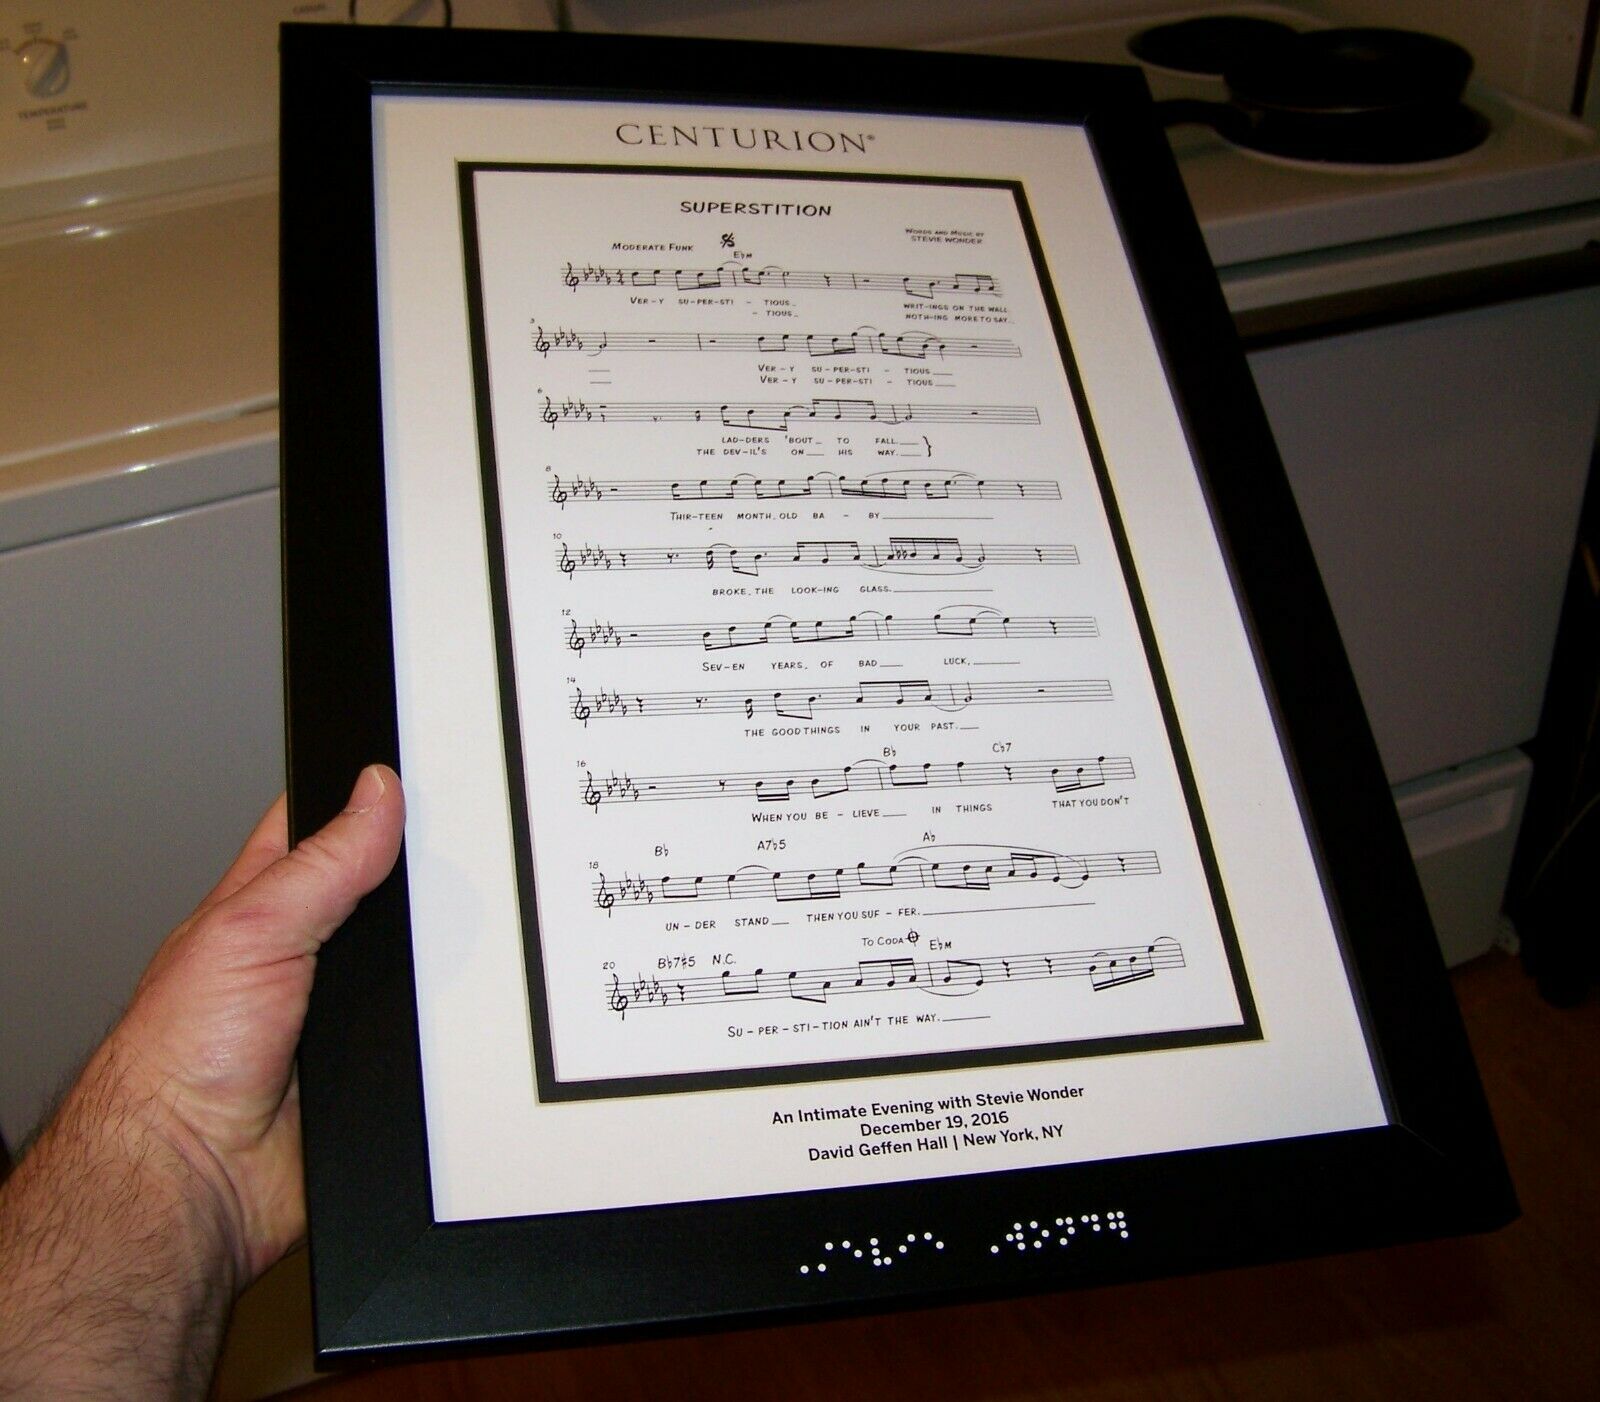 TEMPERATURE
CENTURION®
SUPERSTITION
WORDS AND MUSIC BY
STEVIE WONDER
MODERATE FUNK
E♭M
VER-Y SU-PER-STI - TIOUS_ WRIT-INGS ON THE WALL
- TIOUS_ NOTH-ING MORE TO SAY_
3
VER-Y SU-PER-STI - TIOUS___
VER-Y SU-PER-STI - TIOUS___
6
LAD-DERS 'BOUT_ TO FALL.___
THE DEV-IL'S ON___ HIS WAY.___
8
THIR-TEEN MONTH, OLD BA - BY___
10
BROKE, THE LOOK-ING GLASS.___
12
SEV-EN YEARS, OF BAD___ LUCK,___
14
THE GOOD THINGS IN YOUR PAST.___
16
B♭ C♭7
WHEN YOU BE - LIEVE___ IN THINGS THAT YOU DON'T
18
B♭ A7♭5 A♭
UN-DER STAND___ THEN YOU SUF - FER.___
TO CODA E♭M
20 B♭7♯5 N.C.
SU-PER-STI-TION AIN'T THE WAY.___
An Intimate Evening with Stevie Wonder
December 19, 2016
David Geffen Hall | New York, NY